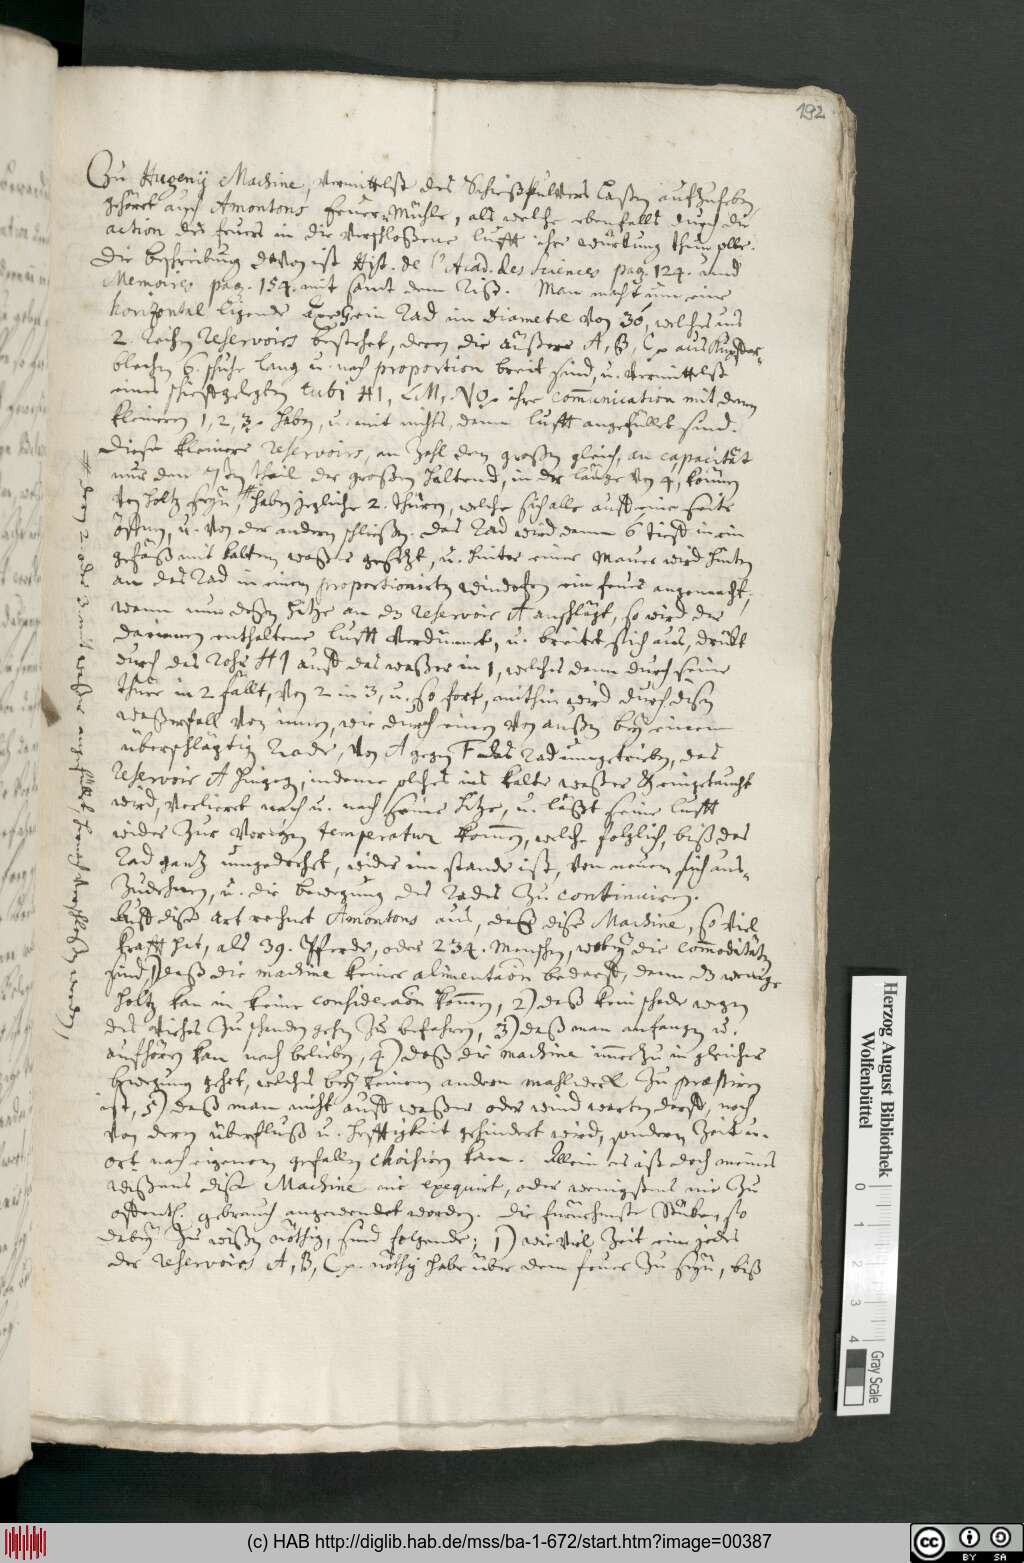 192
Zu Hugenij Machine, vermittelst des Schießpulvers Lasten aufzuheben,
gehöret auch Amontons Feuer-Mühle, als welche ebenfalls durch die
action des feuers in die verschloßene lufft ihre würkung thun solle.
Die beschreibung davon ist Hist. de l'Acad. des Sciences pag. 124. und
Memoires pag. 154. mit samt dem Riß. Man macht um eine
horizontal ligende Axe ein Rad im Diametre von 30, welches aus
2. Reihen Reservoirs bestehet, deren die äußere A, B, C aus Kupffer-
blechen 6. schuhe lang u. nach proportion breit sind, u. vermittelst
eines schieffgelegten tubi HI, LM, NO ihre communication mit denen
kleinern 1, 2, 3. haben, u. mit nichts, denn lufft angefüllet sind.
Diese kleinere Reservoirs, an Zahl den großen gleich, an capacität
nur den theil der großen haltend, in der länge von 4, können
von holtz seyn, # haben jegliche 2. thüren, welche sich alle auff eine seite
öffnen, u. von der andern schließen. Das Rad wird dann 6 tieff in ein
gefäß mit kaltem waßer gesetzt, u. hinter einer Mauer wird hinten
an das Rad in einem proportionirten windofen ein feuer angemacht;
wann nun deßen hitze an das reservoir A anschlägt, so wird die
darinnen enthaltene lufft verdünnet, u. breitet sich aus, drükt
durch das Rohr HI auff das waßer in 1, welches dann durch seine
thüre in 2 fällt, von 2 in 3, u. so fort, mithin wird durch disen
waßerfall von innen, wie durch einen von außen bey einem
überschlägtigen Rade, von A gegen F das Rad umgetrieben, das
reservoir A hingegen, indeme solches ins kalte waßer eingetaucht
wird, verlieret nach u. nach seine hitze, u. läßt seine lufft
wider zur vorigen temperatur kommen, welche folglich, biß das
Rad gantz umgedrehet, wider im stande ist, von neuem sich aus-
zudehnen, u. die bewegung des Rades zu continuiren.
Auff dise art rechnet Amontons aus, daß dise Machine, so viel
krafft hat, als 39. Pferde, oder 234. Menschen, wobey die commoditäten
sind 1) daß die machine keiner alimentation bedarff, denn das wenige
holtz kan in keine consideration kommen, 2) daß kein schade wegen
des Viehes zu schanden gehen zu befahren, 3) daß man anfangen u.
aufhören kan nach belieben, 4) daß die machine immerzu in gleicher
bewegung gehet, welches bey keinem andern mahlwerk zu præstiren
ist, 5) daß man nicht auff waßer oder wind warten darff, noch
von deren überfluß u. hefftigkeit gehindert wird, sondern Zeit u.
ort nach eigenem gefallen choisiren kan. Allein es ist doch meines
wißens dise Machine nie exequirt, oder wenigstens nie zu
offentl. gebrauch angewendet worden. Die fürnehmste Stüke, so
dabey zu wißen nöthig, sind folgende; 1) wie viel Zeit ein jedes
der reservoirs A, B, C nöthig habe über dem feuer zu seyn, biß
# deren 2. oder 3. mit waßer angefüllet, hernach verschloßen werden,
Herzog August Bibliothek
Wolfenbüttel
0 1 2 3 4
Gray Scale
(c) HAB http://diglib.hab.de/mss/ba-1-672/start.htm?image=00387
cc BY SA